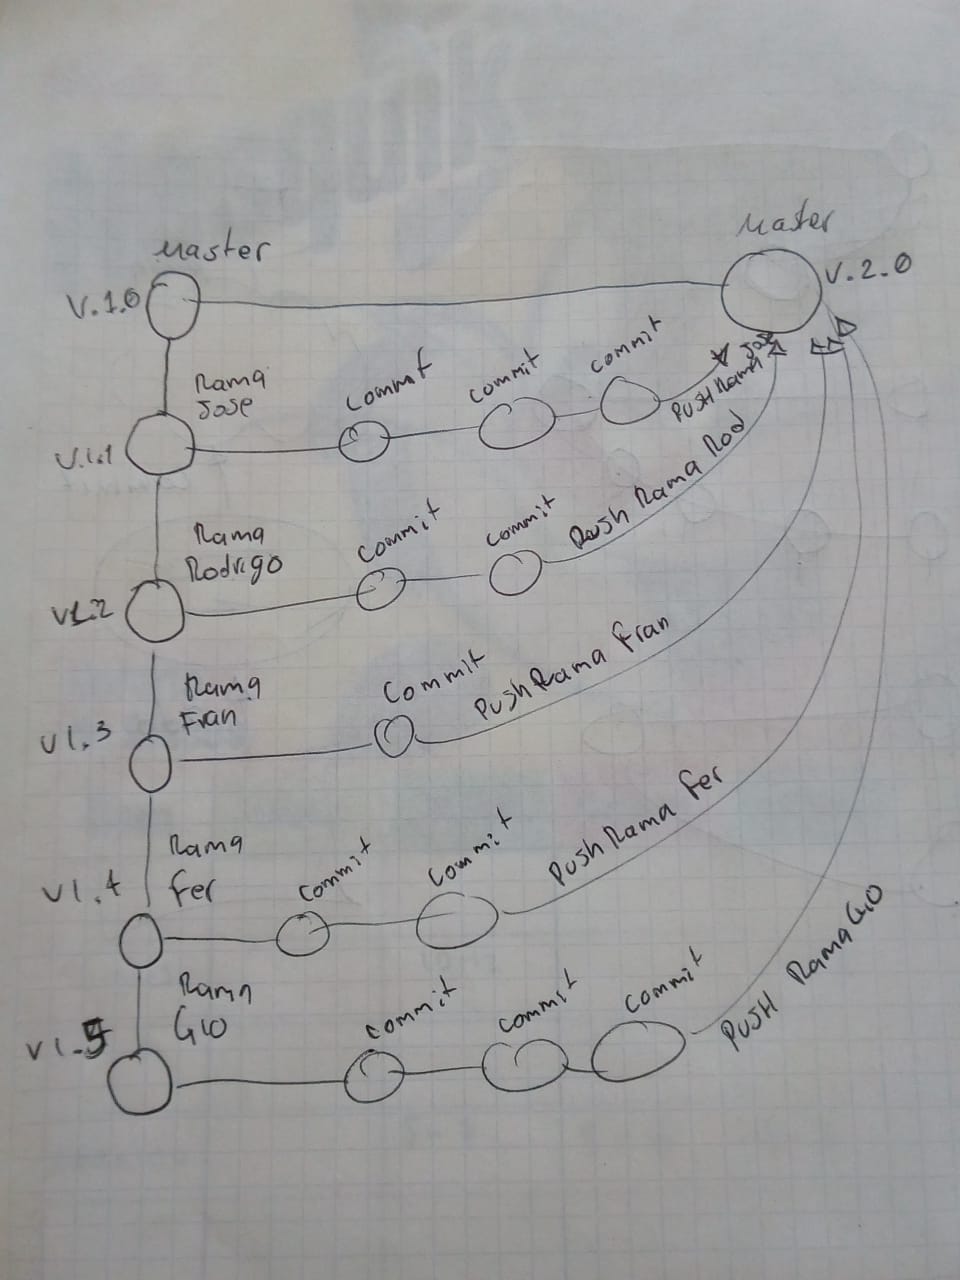 Master
Master
V.1.0
V.2.0
Rama
Jose
commit
commit
commit
PUSH Rama
Jose
V.1.1
Rama
Rodrigo
commit
commit
Push Rama Rod
V1.2
Rama
Fran
Commit
Push Rama Fran
V1.3
Rama
Fer
commit
commit
Push Rama Fer
V1.4
Rama
Gio
commit
commit
commit
PUSH Rama Gio
V1.5